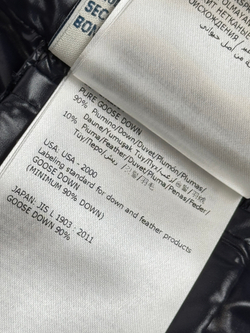 SEC
BON
PURE GOOSE DOWN
90% Piumino/Down/Duvet/Plumón/Plumas/
Daune/Yumuşak Tuy/Пух/
10% Piuma/Feather/Duvet/Pluma/Penas/Feder/
Tuy/Перо/ریش/
USA: USA - 2000
Labeling standard for down and feather products
GOOSE DOWN
(MINIMUM 90% DOWN)
JAPAN: JIS L 1903 : 2011
GOOSE DOWN 90%